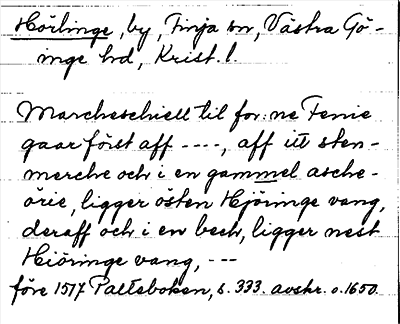 Hörlinge, by, Finja sn, Västra Gö-
inge hd, Krist. l.
Marcheschiell til for:ne Fenie
gaar först aff ----, aff itt sten-
merche och i en gammel asche-
örie, ligger östen Hjöringe vang,
deraff och i en bech, ligger nest
Hiöringe vang, ---
före 1517 Palteboken, s. 333. avskr. o. 1650.